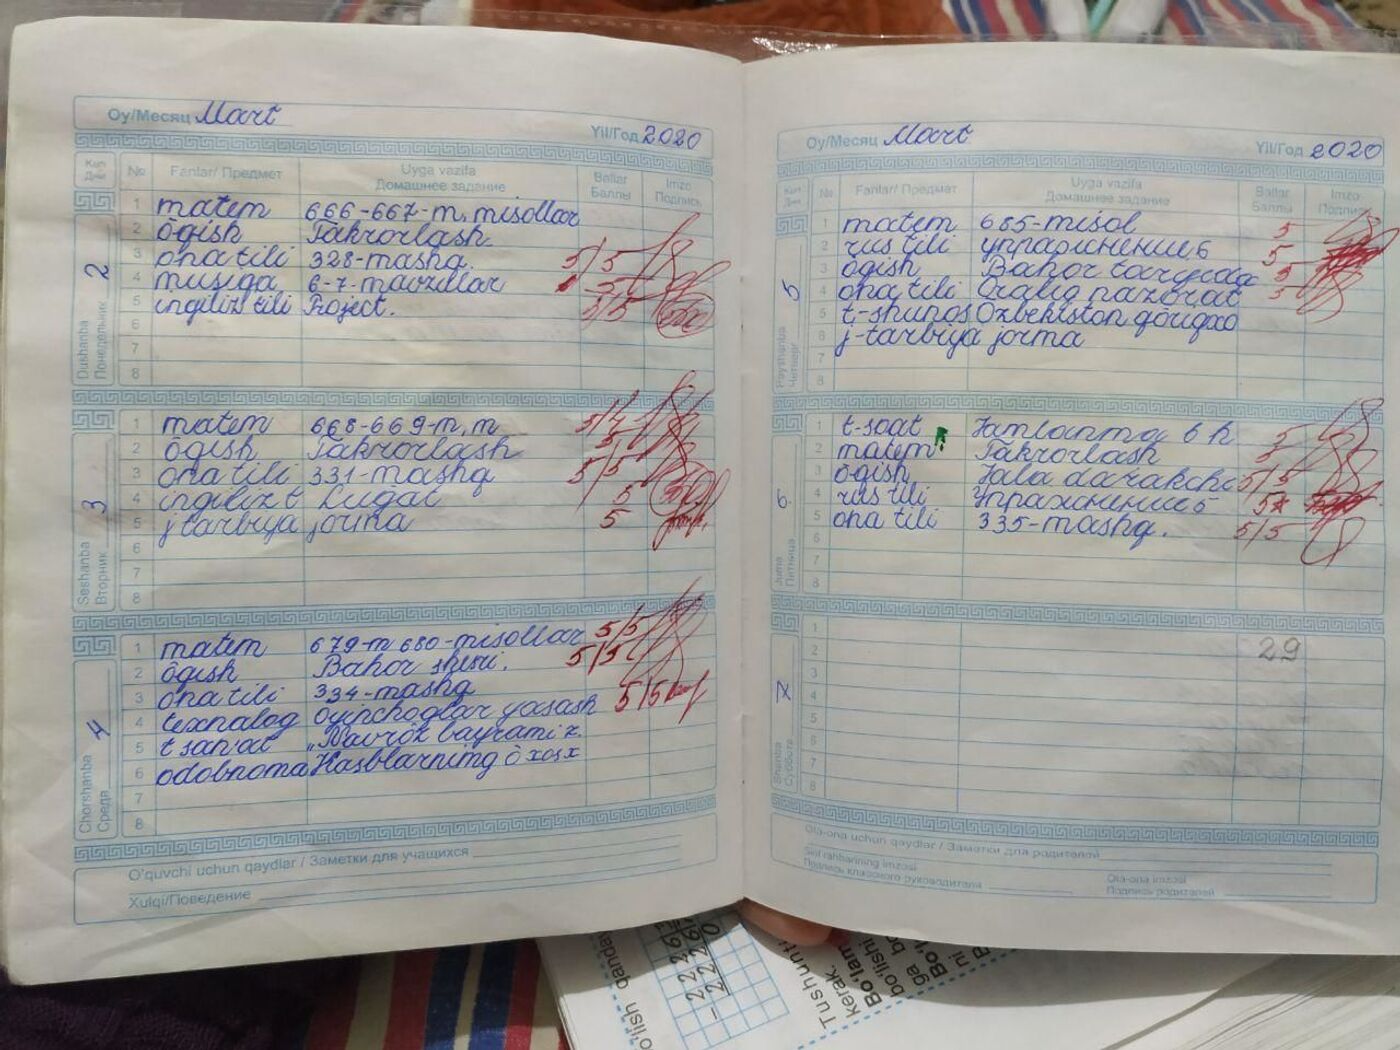 Oy/Месяц Mart
Yil/Год 2020
Кун Дни № Fanlar/ Предмет Uyga vazifa Домашнее задание Ballar Баллы Imzo Подпись
Dushanba Понедельник 2
1 matem 666-667-m, misollar
2 ōqish Takrorlash
3 ona tili 328-mashq. 5/5
4 musiqa 6-7-mavzular 5
5 ingiliz tili Project. 5/5
6
7
8
Seshanba Вторник 3
1 matem 668-669-m, m 5/4
2 ōqish Takrorlash 5
3 ona tili 331-mashq 5/5
4 ingiliz t Lugat 5
5 j tarbiya jorma 5
6
7
8
Chorshanba Среда 4
1 matem 679-m 680-misollar 5/5
2 ōqish Bahor sheri. 5/5
3 ona tili 334-mashq
4 texnalog oyinchoqlar yasash 5/5
5 t san'at „Navrōz bayrami z.
6 odobnoma Kasblarning ō xosx
7
8
O'quvchi uchun qaydlar / Заметки для учащихся
Xulqi/Поведение
Oy/Месяц Mart
Yil/Год 2020
Кун Дни № Fanlar/ Предмет Uyga vazifa Домашнее задание Ballar Баллы Imzo Подпись
Payshanba Четверг 5
1 matem 685-misol 5
2 rus tili упражнение 6 5
3 ōqish Bahor taryida 5
4 ona tili Oraliq nazorat 5
5 t-shunos Ozbekiston qōriqxo
6 j-tarbiya jorma
7
8
Juma Пятница 6
1 t-soat Jamlanma 6 h 5
2 matem Takrorlash 5
3 ōqish Jala darakchi 5/5
4 rus tili Упражнение 5 5
5 ona tili 335-mashq. 5/5
6
7
8
Shanba Суббота 7
1
2 29
3
4
5
6
7
8
Ota-ona uchun qaydlar / Заметки для родителей
Sinf rahbarining imzosi Подпись классного руководителя
Ota-ona imzosi Подпись родителей